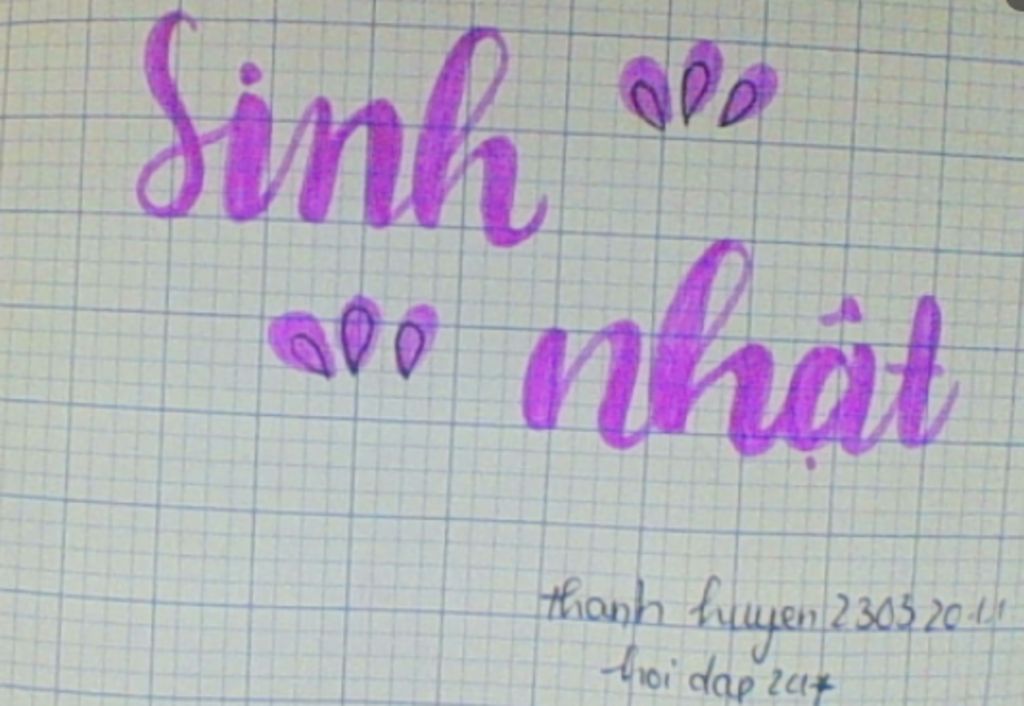 Sinh
nhật
thanh huyen 23032011
hoi dap 247